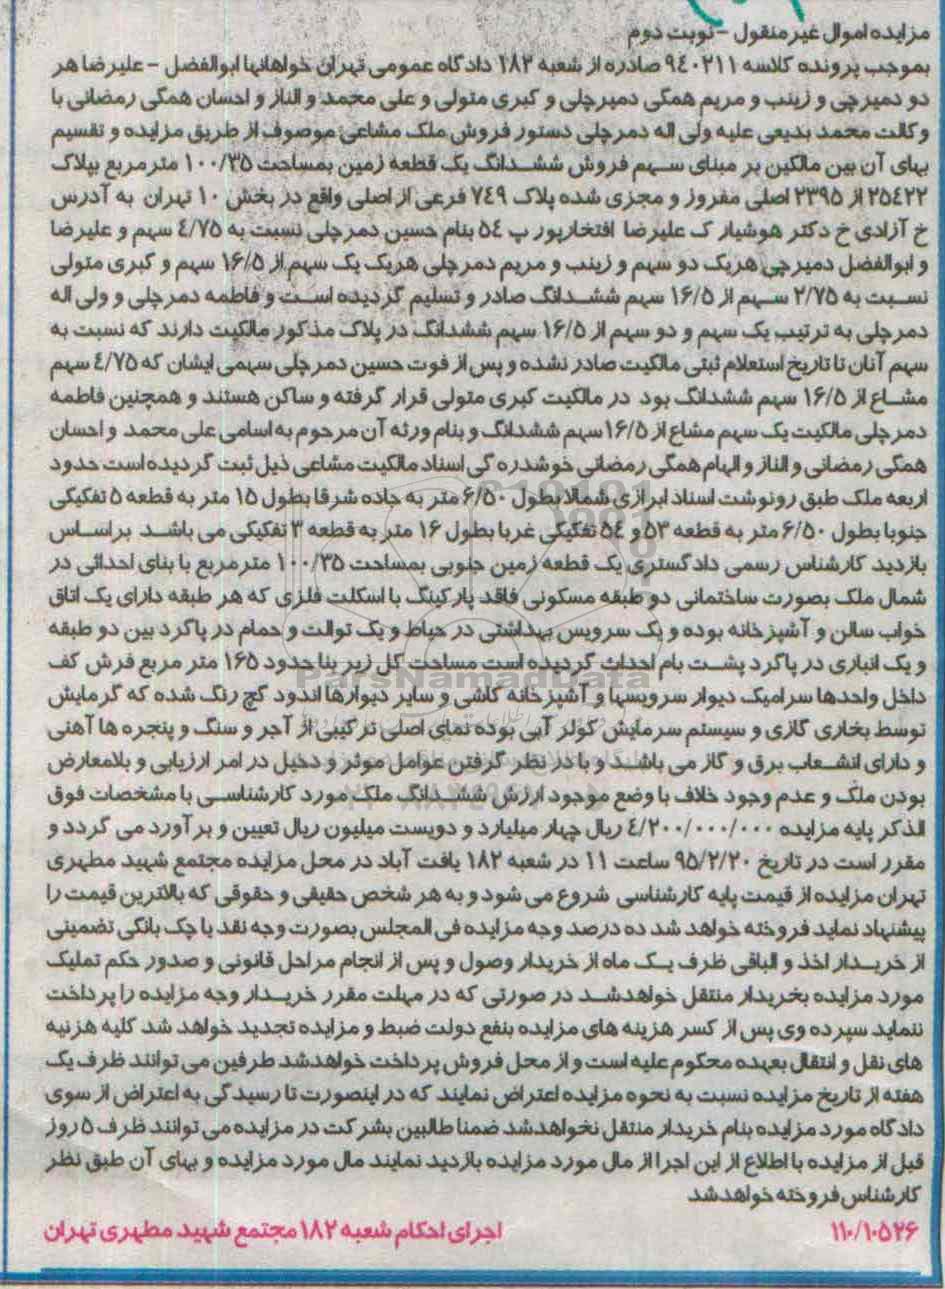 مزایده اموال غیر منقول - نوبت دوم
بموجب پرونده کلاسه ۹۴۰۲۱۱ صادره از شعبه ۱۸۲ دادگاه عمومی تهران خواهانها ابوالفضل - علیرضا هر
دو دمیرچی و زینب و مریم همگی دمیرچلی و کبری متولی و علی محمد و الناز و احسان همگی رمضانی با
وکالت محمد بدیعی علیه ولی اله دمرچلی دستور فروش ملک مشاعی موصوف از طریق مزایده و تقسیم
بهای آن بین مالکین بر مبنای سهم فروش ششدانگ یک قطعه زمین بمساحت ۱۰۰/۳۵ مترمربع بپلاک
۲۵۴۲۲ از ۲۳۹۵ اصلی مفروز و مجزی شده پلاک ۷۴۹ فرعی از اصلی واقع در بخش ۱۰ تهران به آدرس
خ آزادی خ دکتر هوشیار ک علیرضا افتخارپور پ ۵۴ بنام حسین دمرچلی نسبت به ۴/۷۵ سهم و علیرضا
و ابوالفضل دمیرچی هریک دو سهم و زینب و مریم دمرچلی هریک یک سهم از ۱۶/۵ سهم و کبری متولی
نسبت به ۲/۷۵ سهم از ۱۶/۵ سهم ششدانگ صادر و تسلیم گردیده است و فاطمه دمرچلی و ولی اله
دمرچلی به ترتیب یک سهم و دو سهم از ۱۶/۵ سهم ششدانگ در پلاک مذکور مالکیت دارند که نسبت به
سهم آنان تا تاریخ استعلام ثبتی مالکیت صادر نشده و پس از فوت حسین دمرچلی سهمی ایشان که ۴/۷۵ سهم
مشاع از ۱۶/۵ سهم ششدانگ بود در مالکیت کبری متولی قرار گرفته و ساکن هستند و همچنین فاطمه
دمرچلی مالکیت یک سهم مشاع از ۱۶/۵ سهم ششدانگ و بنام ورثه آن مرحوم به اسامی علی محمد و احسان
همگی رمضانی و الناز و الهام همگی رمضانی خوشدره گی اسناد مالکیت مشاعی ذیل ثبت گردیده است حدود
اربعه ملک طبق رونوشت اسناد ابرازی شمالا بطول ۶/۵۰ متر به جاده شرقا بطول ۱۵ متر به قطعه ۵ تفکیکی
جنوبا بطول ۶/۵۰ متر به قطعه ۵۳ و ۵۴ تفکیکی غربا بطول ۱۶ متر به قطعه ۳ تفکیکی می باشد براساس
بازدید کارشناس رسمی دادگستری یک قطعه زمین جنوبی بمساحت ۱۰۰/۳۵ مترمربع با بنای احداثی در
شمال ملک بصورت ساختمانی دو طبقه مسکونی فاقد پارکینگ با اسکلت فلزی که هر طبقه دارای یک اتاق
خواب سالن و آشپزخانه بوده و یک سرویس بهداشتی در حیاط و یک توالت و حمام در پاگرد بین دو طبقه
و یک انباری در پاگرد پشت بام احداث گردیده است مساحت کل زیر بنا حدود ۱۶۵ متر مربع فرش کف
داخل واحدها سرامیک دیوار سرویسها و آشپزخانه کاشی و سایر دیوارها اندود گچ رنگ شده که گرمایش
توسط بخاری گازی و سیستم سرمایش کولر آبی بوده نمای اصلی ترکیبی از آجر و سنگ و پنجره ها آهنی
و دارای انشعاب برق و گاز می باشد و با در نظر گرفتن عوامل موثر و دخیل در امر ارزیابی و بلامعارض
بودن ملک و عدم وجود خلاف با وضع موجود ارزش ششدانگ ملک مورد کارشناسی با مشخصات فوق
الذکر پایه مزایده ۴/۲۰۰/۰۰۰/۰۰۰ ریال چهار میلیارد و دویست میلیون ریال تعیین و برآورد می گردد و
مقرر است در تاریخ ۹۵/۲/۲۰ ساعت ۱۱ در شعبه ۱۸۲ یافت آباد در محل مزایده مجتمع شهید مطهری
تهران مزایده از قیمت پایه کارشناسی شروع می شود و به هر شخص حقیقی و حقوقی که بالاترین قیمت را
پیشنهاد نماید فروخته خواهد شد ده درصد وجه مزایده فی المجلس بصورت وجه نقد یا چک بانکی تضمینی
از خریدار اخذ و الباقی ظرف یک ماه از خریدار وصول و پس از انجام مراحل قانونی و صدور حکم تملیک
مورد مزایده بخریدار منتقل خواهدشد در صورتی که در مهلت مقرر خریدار وجه مزایده را پرداخت
ننماید سپرده وی پس از کسر هزینه های مزایده بنفع دولت ضبط و مزایده تجدید خواهد شد کلیه هزینه
های نقل و انتقال بعهده محکوم علیه است و از محل فروش پرداخت خواهدشد طرفین می توانند ظرف یک
هفته از تاریخ مزایده نسبت به نحوه مزایده اعتراض نمایند که در اینصورت تا رسیدگی به اعتراض از سوی
دادگاه مورد مزایده بنام خریدار منتقل نخواهدشد ضمنا طالبین بشرکت در مزایده می توانند ظرف ۵ روز
قبل از مزایده با اطلاع از این اجرا از مال مورد مزایده بازدید نمایند مال مورد مزایده و بهای آن طبق نظر
کارشناس فروخته خواهدشد
۱۱۰/۱۰۵۲۶ اجرای احکام شعبه ۱۸۲ مجتمع شهید مطهری تهران
ParsNamadData